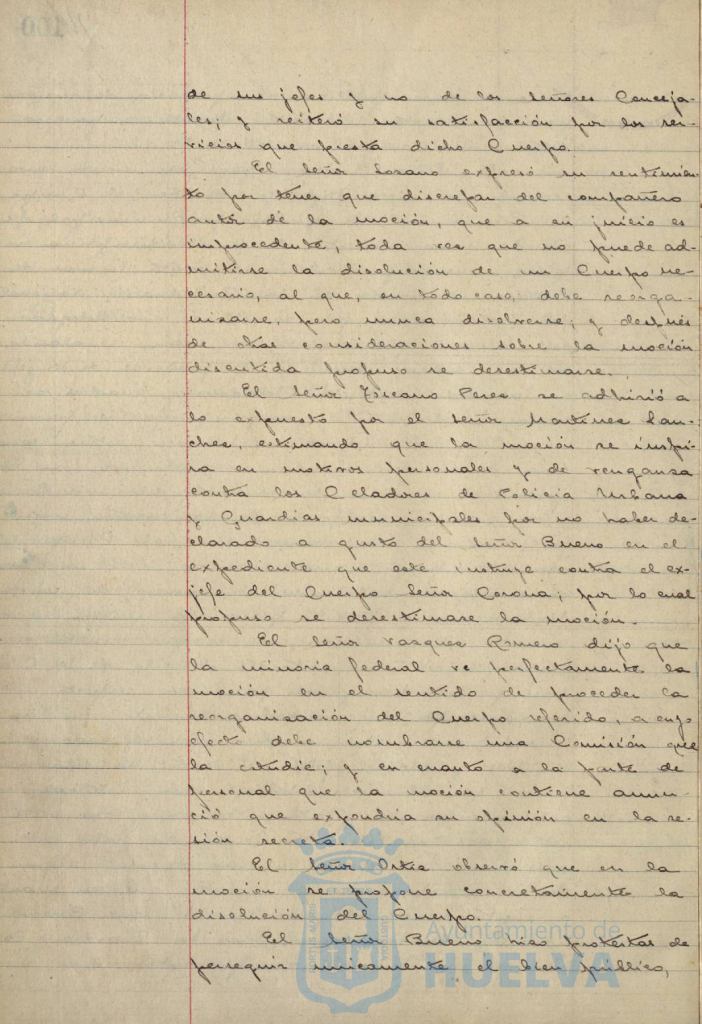 de sus jefes y no de los señores Conceja-
les; y reiteró su satisfacción por los ser-
vicios que presta dicho Cuerpo.
El señor Lozano expresó su sentimien-
to por tener que discrepar del compañero
autor de la moción, que a su juicio es
improcedente, toda vez que no puede ad-
mitirse la disolución de un Cuerpo ne-
cesario, al que, en todo caso, debe reorga-
nizarse, pero nunca disolverse; y después
de otras consideraciones sobre la moción
discutida propuso se desestimase.
El señor Toscano Perez se adhirió a
lo expuesto por el señor Martinez San-
chez, estimando que la moción se inspi-
ra en motivos personales y de venganza
contra los Celadores de Policia Urbana
y Guardias municipales por no haber de-
clarado a gusto del señor Bueno en el
expediente que este instruye contra el ex-
jefe del Cuerpo señor Corona; por lo cual
propuso se desestimase la moción.
El señor Vazquez Romero dijo que
la minoria federal ve perfectamente la
moción en el sentido de proceder la
reorganización del Cuerpo referido, a cuyo
efecto debe nombrarse una Comisión que
la estudie; y en cuanto a la parte de
personal que la moción contiene anun-
ció que expondria su opinión en la se-
sión secreta.
El señor Ortiz observó que en la
moción se propone concretamente la
disolución del Cuerpo.
El señor Bueno hizo protestas de
perseguir unicamente el bien público,
Ayuntamiento de
HUELVA